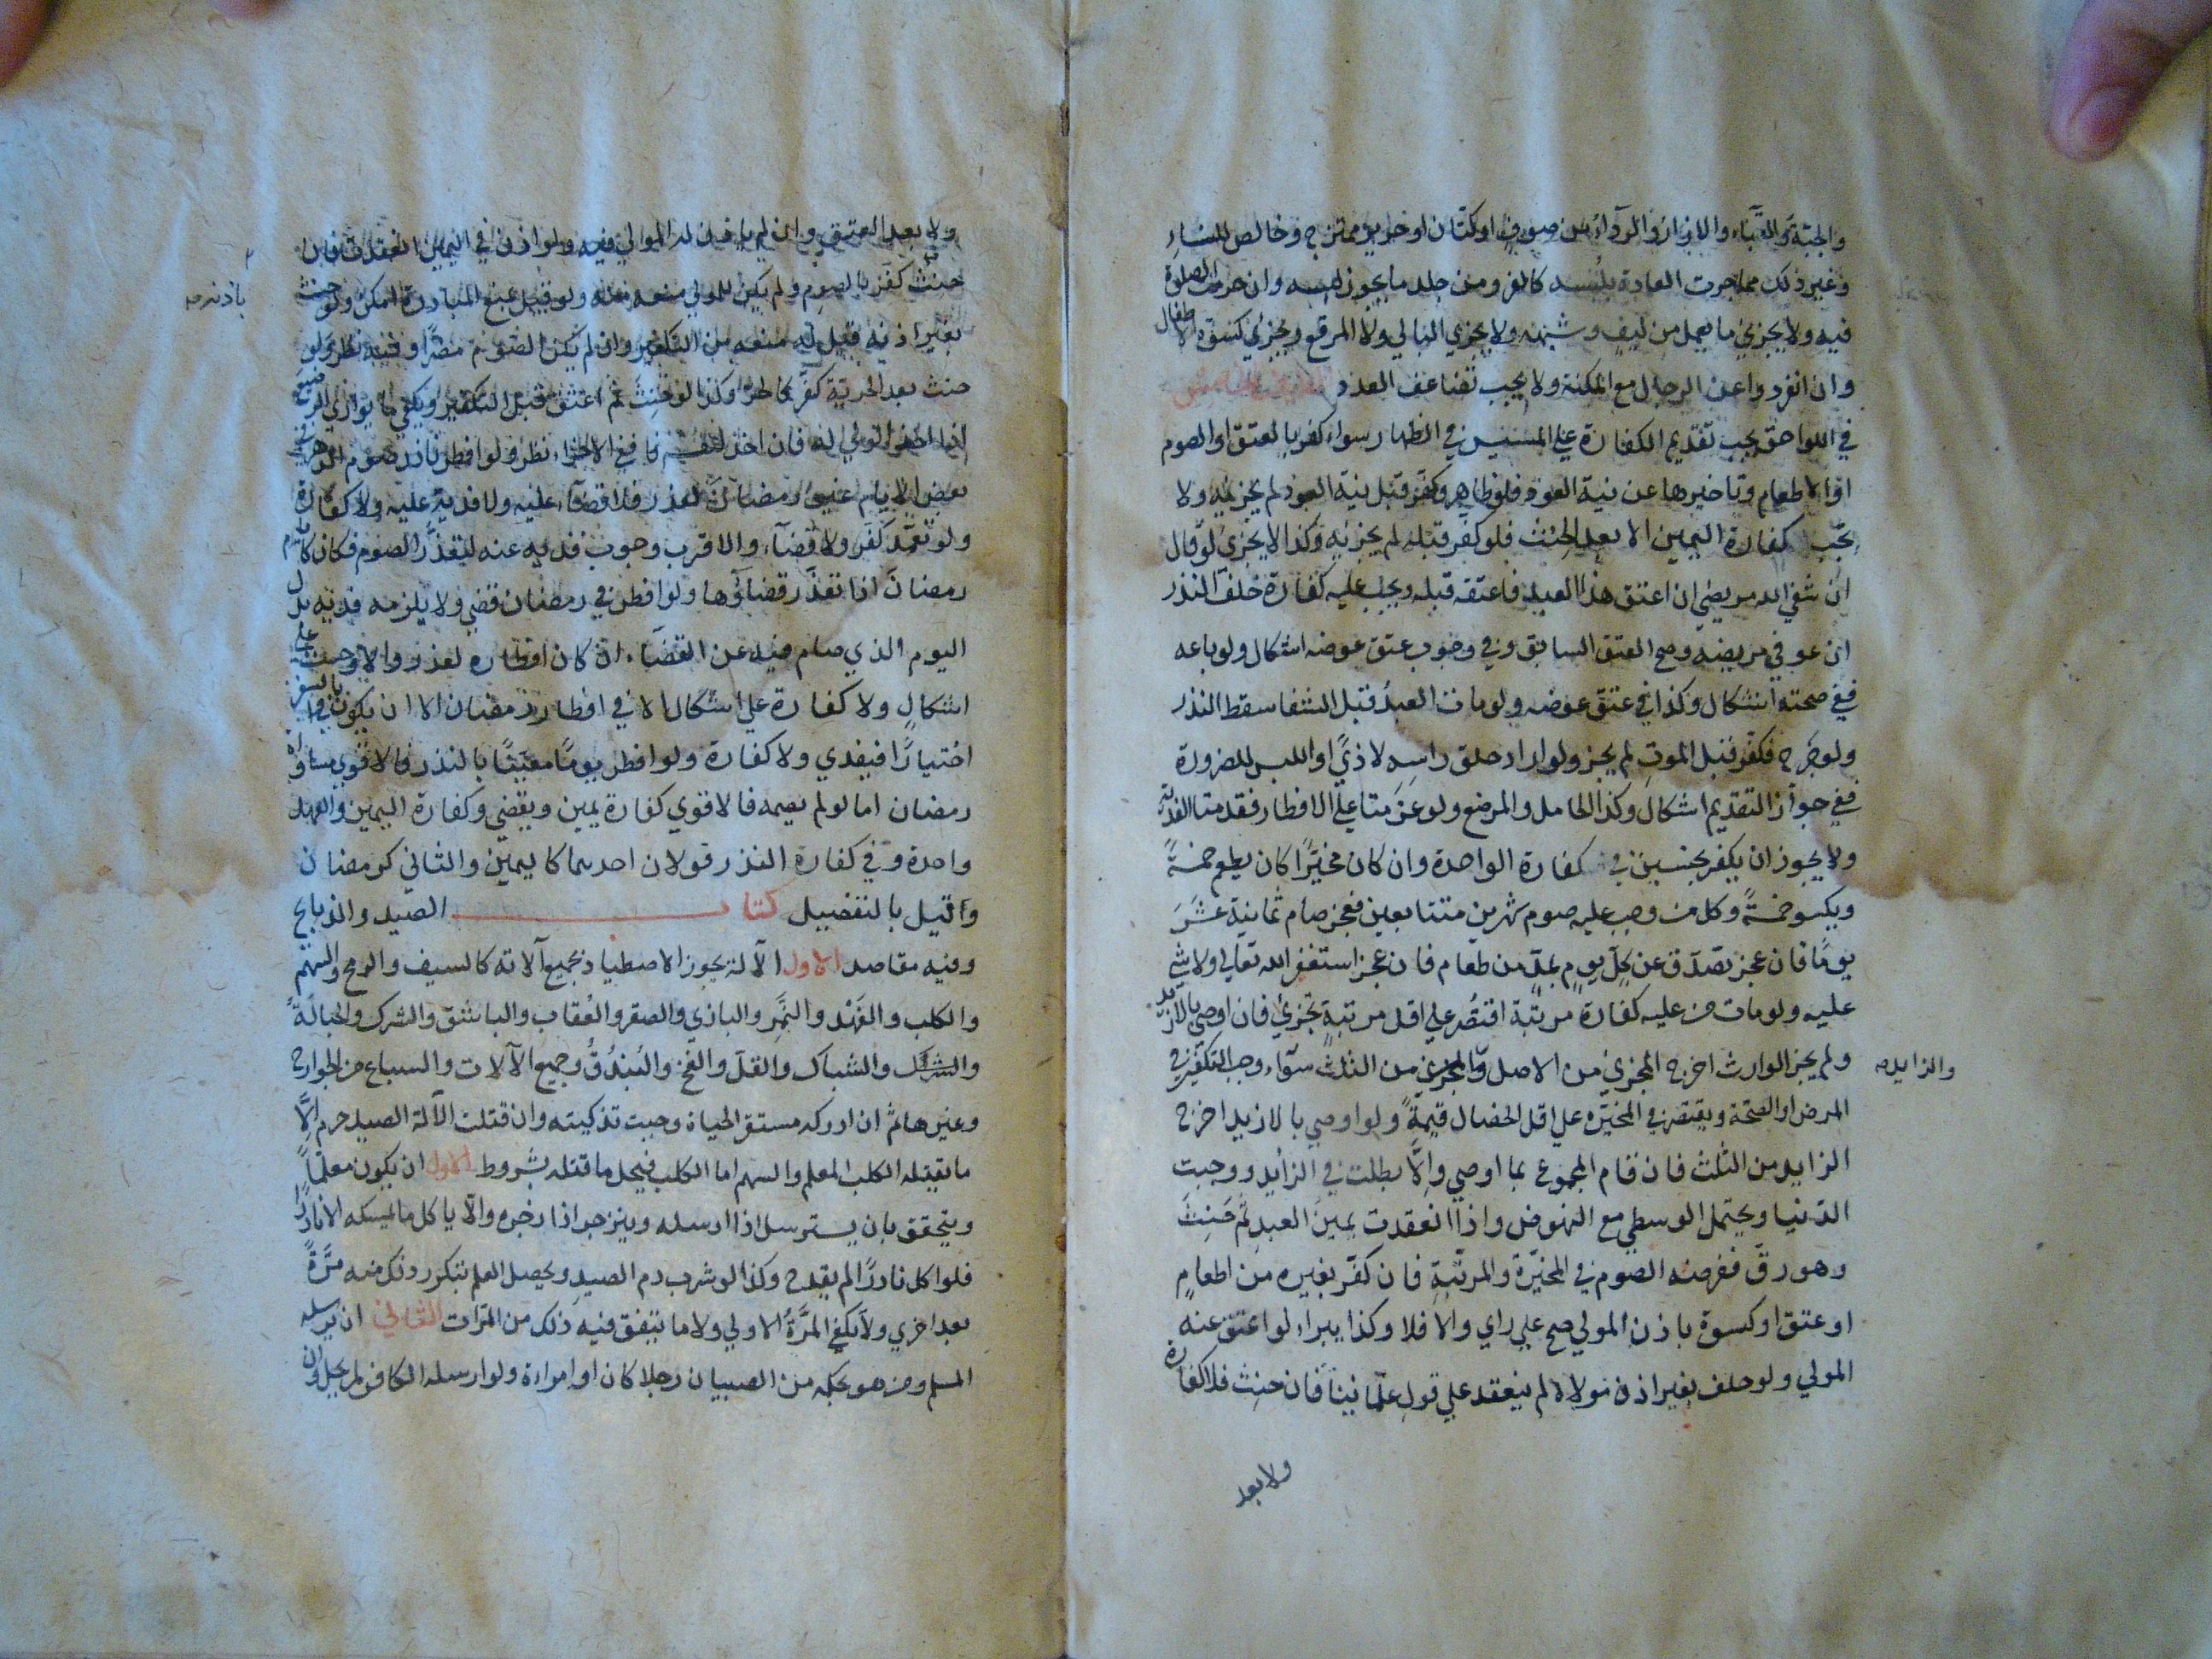 والجبّة والقَبَاء والازار والرداء من صوفٍ او كتّان او حرير ممتزج وخالص للنساء
وغير ذلك مما جرت العادة بلبسه كالفرو من جلد ما يجوز لبسه وان حرمت الصلوة
فيه ولا يجزئ ما يعمل من ليف وشبهه ولا يجزي البالي ولا المرقع ويجزئ كسوة الاطفال
وان انفردوا عن الرجال مع المكنة ولا يجب تضاعف العدد
في اللواحق يجب تقديم الكفارة على المسيس في الظهار سواء كفر بالعتق او الصوم
او الاطعام وتاخيرها عن نية العود فلو ظاهر وكفّر قبل نية العود لم يجزئه ولا
يجب كفارة اليمين الا بعد الحنث فلو كفر قبله لم يجزئه وكذا لا يجزي لو قال
ان شفي الله مريضي ان اعتق هذا العبد فاعتقه قبله ويجب عليه كفارة خلف النذر
ان عوفي مريضه وصح العتق السابق وفي وجوب عتق عوضه اشكال ولو باعه
ففي صحته اشكال وكذا في عتق عوضه ولو مات العبدُ قبل الشفا سقط النذر
ولو جَرح فكفّر قبل الموتِ لم يجز ولو اراد حلق راسِه لاذيً او اللبس للضرورة
ففي جواز التقديم اشكال وكذا الحامل والمرضع ولو عزمتا على الافطار فقدمتا الفدية
ولا يجوز ان يكفر بجنسين في كفارة الواحدة وان كان مخيّرًا كان يطعم خمسةً
ويكسو خمسةً وكل من وجب عليه صوم شهرين متتابعين فعجز صام ثمانية عشَرَ
يومًا فان عجز تصدّق عن كلّ يومٍ بمدٍّ من طعام فان عجز استغفر الله تعالى ولا شيء
عليه ولو مات من عليه كفارة مرتّبة اقتصُر على اقل مرتبةٍ تجزئ فان اوصى بالازيد
ولم يجز الوارث اخرج المجزئ من الاصل والمجزئ من الثلث سوآء وجب التكفير في
والزايد صه
المرض او الصحّة ويقتصر في المخيّره على اقل الخصال قيمةً ولو اوصي بالازيد اخرج
الزايد من الثلث فان قام المجموع بما اوصي وإلّا بطلت في الزايد ووجبت
الدنيا ويحتمل الوسطي مع النهوض واذا انعقدت يمينُ العبد ثم حَنِثَ
وهو رقّ ففرضه الصوم في المخيّرة والمرتّبةِ فان كفّر بغيره من اطعامٍ
او عتق او كسوة باذن المولي صح على راي والا فلا وكذا يبراء لو اعتق عنه
المولي ولو حلف بغير اذن مولاه لم ينعقد علي قولِ علمآئنا فان حنِث فلا كفارة
ولا بعد
ولا بعد العتق وان لم ياذن له المولي فيه ولو اذن في اليمين انعقدت فان
حنث كفّر بالصوم ولم يكن للمولي منعه منه ولو قيل بمنع المبادرة امكن ولو حنث
باذنه صه
بغير اذنه قيل له منعه من التكفير وان لم يكن الصوم مضرًا وفيه نظر ولو
حنث بعد الحرية كفّر كالحر وكذا لو حَنِثَ ثم اعتق قبل التكفير ويكفي ما يواري الرضيع
اذا اخذ الولي له فان اخذ لنفسه ففي الاجزاء نظر ولو افطر ناذر صوم الدهر في
بعض الايام غير رمضان لعذر فلا قضآء عليه ولا فدية عليه ولا كفارة
ولو تعمّد كفّر ولا قضآء والاقرب وجوبُ فدية عنه لتعذّر الصوم فكان كايام
رمضانَ اذا تعذّر قضاؤها ولو افطر في رمضان قضي ولا يلزمه فدية بدل
اليوم الذي صام فيه عن القضآء ان كان افطاره لعذر والا وجبت على
اشكالٍ ولا كفارة علي اشكال الا في افطار رمضان الا ان يكون في بالسفر
اختيارًا فيفدي ولا كفارة ولو افطر يومًا معيّنًا بالنذر فالاقوي مساواه
رمضان اما لو لم يصمه فالاقوي كفارة يمين ويقضي وكفارة اليمين والعهد
واحدة وفي كفارة النذر قولان احدهما كاليمين والثاني كرمضان
وقيل بالتفصيل كتاب الصيد والذبايح
وفيه مقاصد الاول الآلة يجوز الاصطياد بجميع آلاته كالسيف والرمح والسهم
والكلب والفَهْد والنَّمِر والبازي والصقر والعُقاب والباشق والشرك والحبالَةُ
والشرك والشباك والقلّ والفخ والبُندُقُ وجميع الآلات والسباع من الجوارح
وغيرها ثم ان ادركه مستقر الحياة وجبت تذكيته وان قتلت الآلة الصيد حرم إلّا
ما يقتله الكلب المعلم والسهم اما الكلب فيحل ما قتله بشروط الاول ان يكون معلّمًا
ويتحقق بان يسترسل اذا ارسله وينزجر اذا زجره والّا ياكل ما يمسكه الا نادرًا
فلو اكل نادرًا لم يقدح وكذا لو شرب دم الصيدِ ويحصل العلم بتكرر ذلك منه مرّةً
بعد اخري ولا يكفي المرَّةُ الاولي ولا ما يتفق فيه ذلك من المرّات الثاني ان يرسله
المسلم ومن هو بحكمه من الصبيان رجلا كان او امراءة ولو ارسله الكافر لم يحل وان